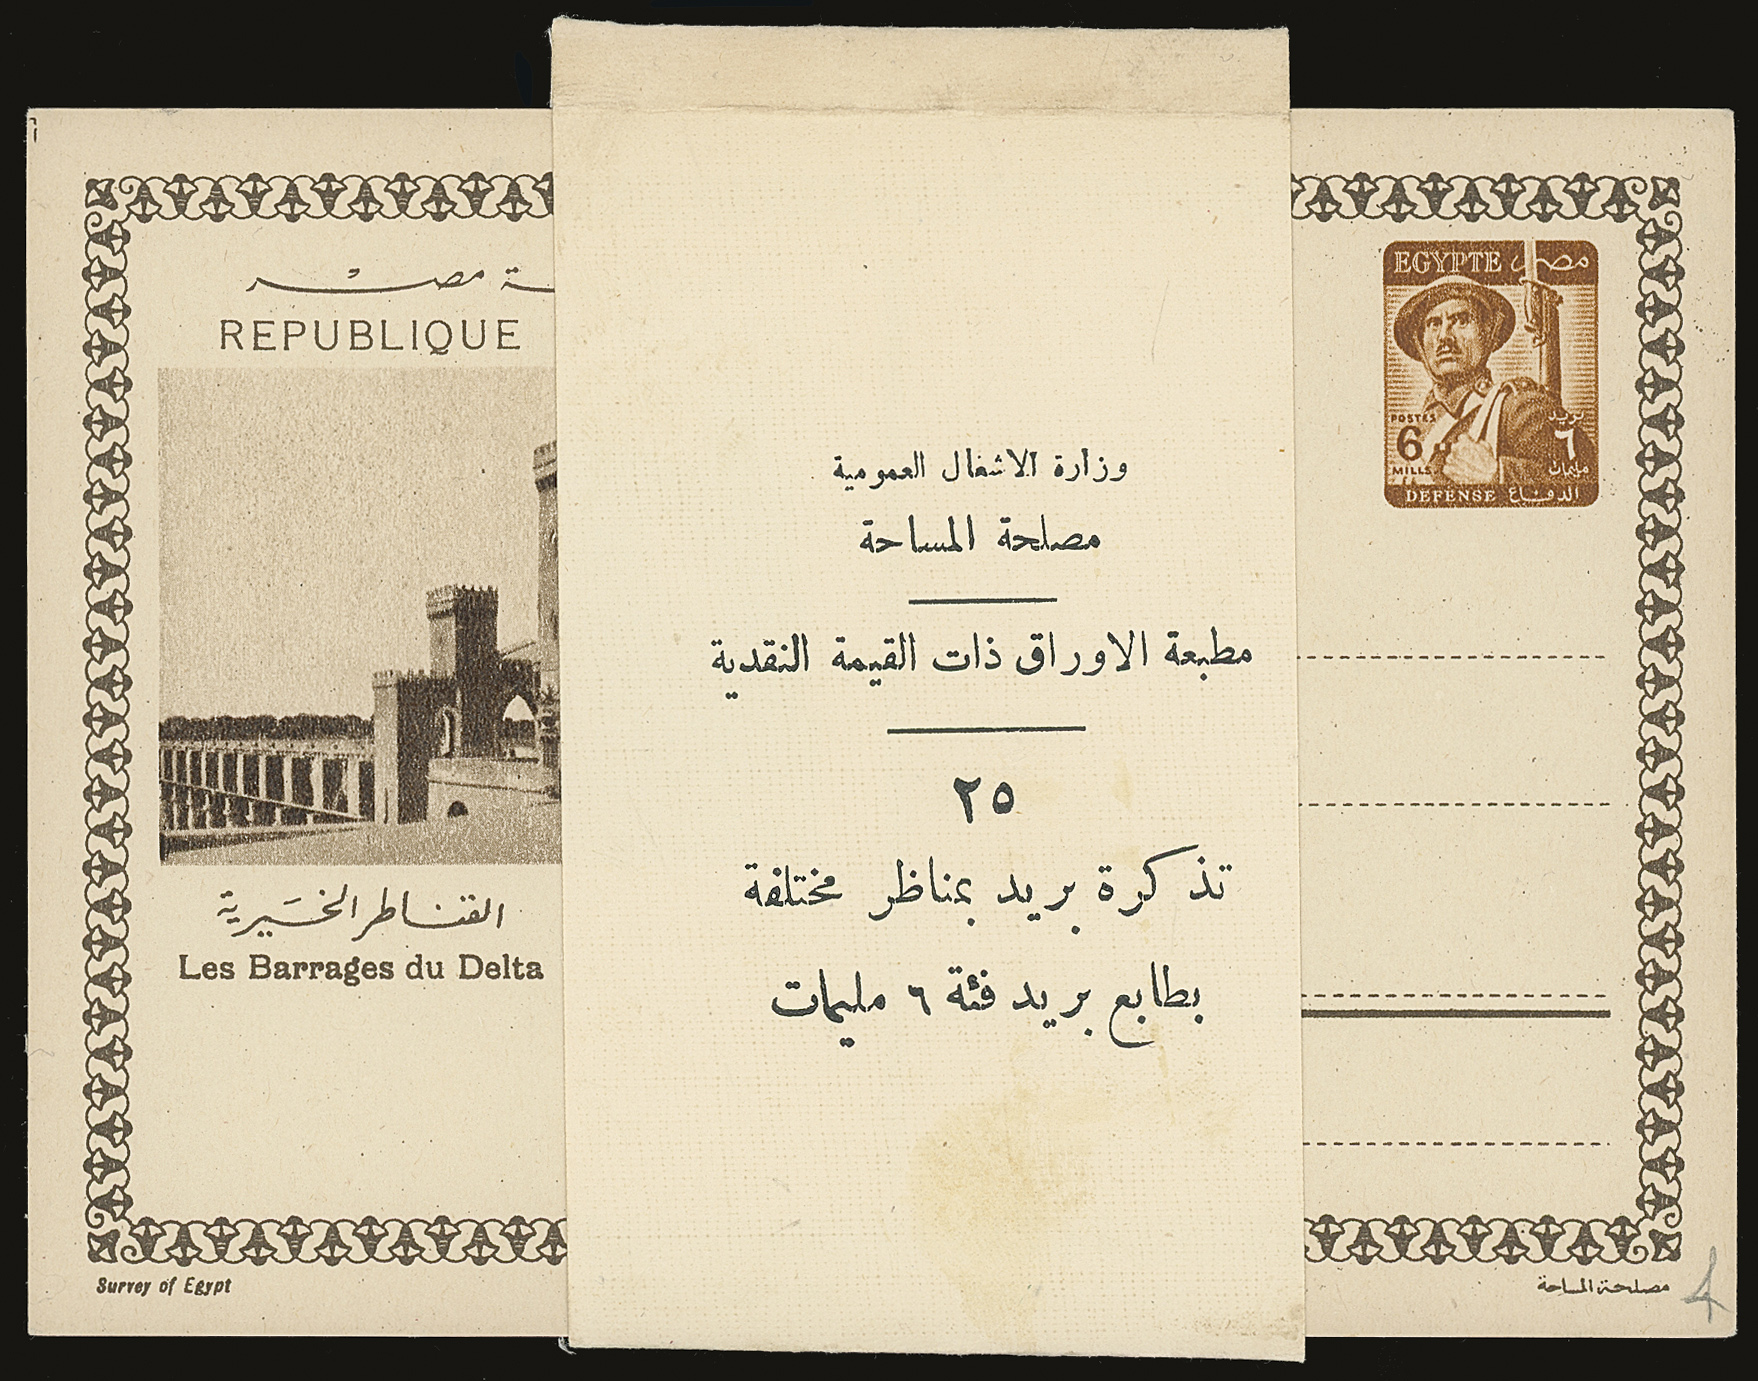 ـة مصـر
REPUBLIQUE
القناطر الخيرية
Les Barrages du Delta
Survey of Egypt
وزارة الاشغال العمومية
مصلحة المساحة
مطبعة الاوراق ذات القيمة النقدية
٢٥
تذكرة بريد بمناظر مختلفة
بطابع بريد فئة ٦ مليمات
EGYPTE مصر
POSTES بريد
6 ٦
MILLS. مليمات
DEFENSE الدفاع
مصلحة المساحة
4